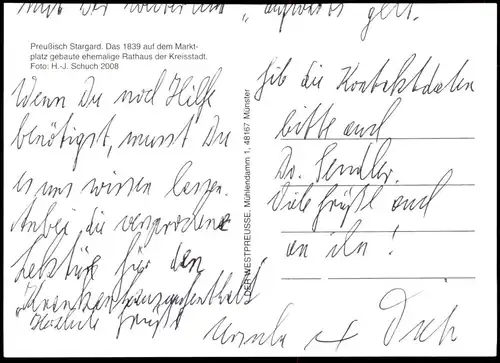 aufwärts geht.
Preußisch Stargard. Das 1839 auf dem Markt-
platz gebaute ehemalige Rathaus der Kreisstadt.
Foto: H.-J. Schuch 2008
Wenn Du noch Hilfe
benötigst, musst Du
es uns wissen lassen.
Anbei die versprochene
Lektüre für den
Krankenhausaufenthalt
Herzliche Grüße
DER WESTPREUSSE, Mühlendamm 1, 48167 Münster
Gib die Kontaktdaten
bitte auch
Dr. Sendler.
Viele Grüße auch
an ihn!
Ursula +